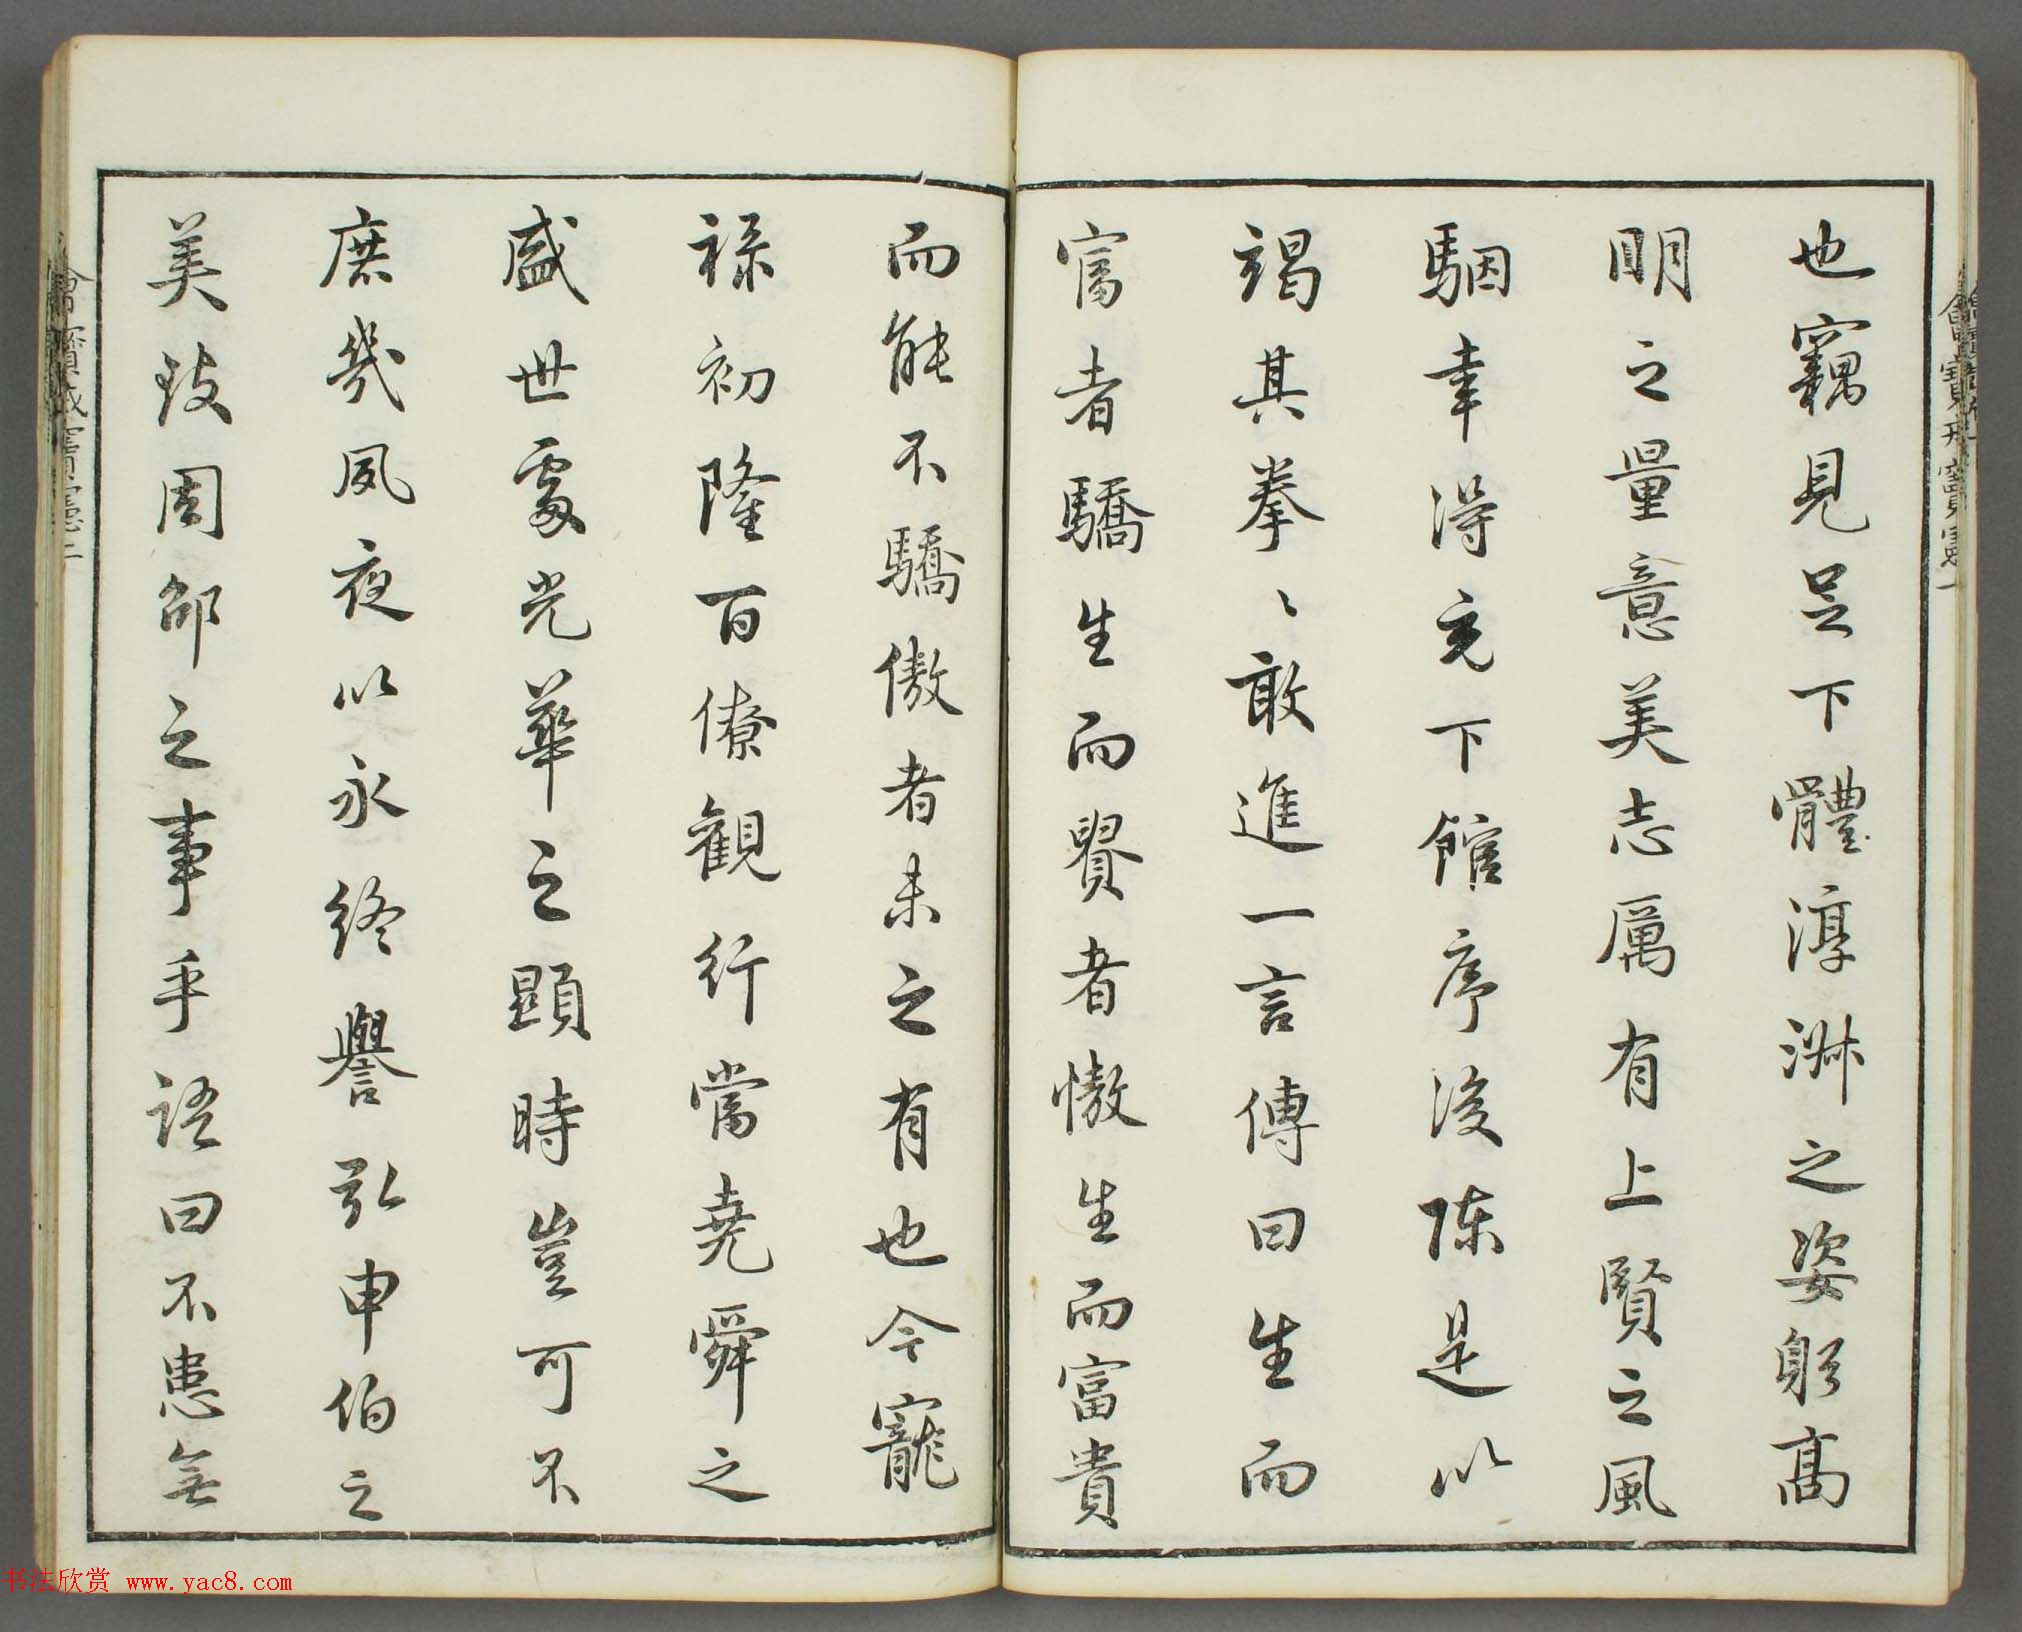 也竊見足下體淳淋之姿躬髙
明之量意美志厲有上賢之風
駰幸得充下館序後陳是以
竭其拳〻敢進一言傳曰生而
富者驕生而貴者慠生而富貴
而能不驕傲者未之有也今寵
祿初隆百僚觀行當堯舜之
盛世處光華之顯時豈可不
庶幾夙夜以永終譽弘申伯之
美致周邵之事乎語曰不患無
書法欣赏 www.yac8.com